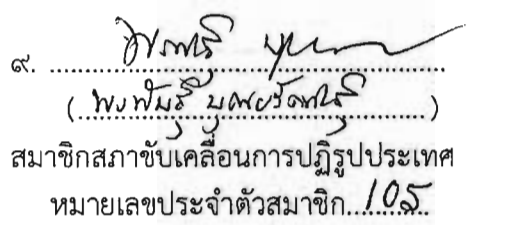 ๙.
(พงพันธุ์ บุณยรัตน์)
สมาชิกสภาขับเคลื่อนการปฏิรูปประเทศ
หมายเลขประจำตัวสมาชิก 105